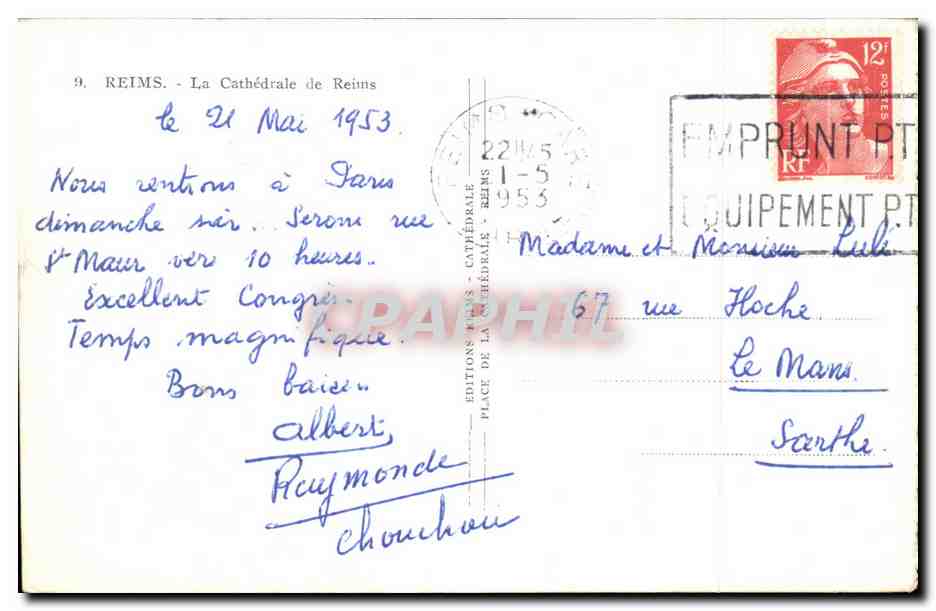 9. REIMS. - La Cathédrale de Reims
le 21 Mai 1953.
Nous rentrons à Paris
dimanche soir.. Serons rue
St Maur vers 10 heures.
Excellent Congrès.
Temps magnifique.
Bons baisers
Albert
Raymonde
Chouchou
EDITIONS REIMS - CATHÉDRALE
PLACE DE LA CATHÉDRALE - REIMS
22H45
1-5
1953
12F
POSTES
RF
EMPRUNT P.T
EQUIPEMENT P.T
Madame et Monsieur Lulé
67 rue Hoche
Le Mans.
Sarthe.
CPAPHIL